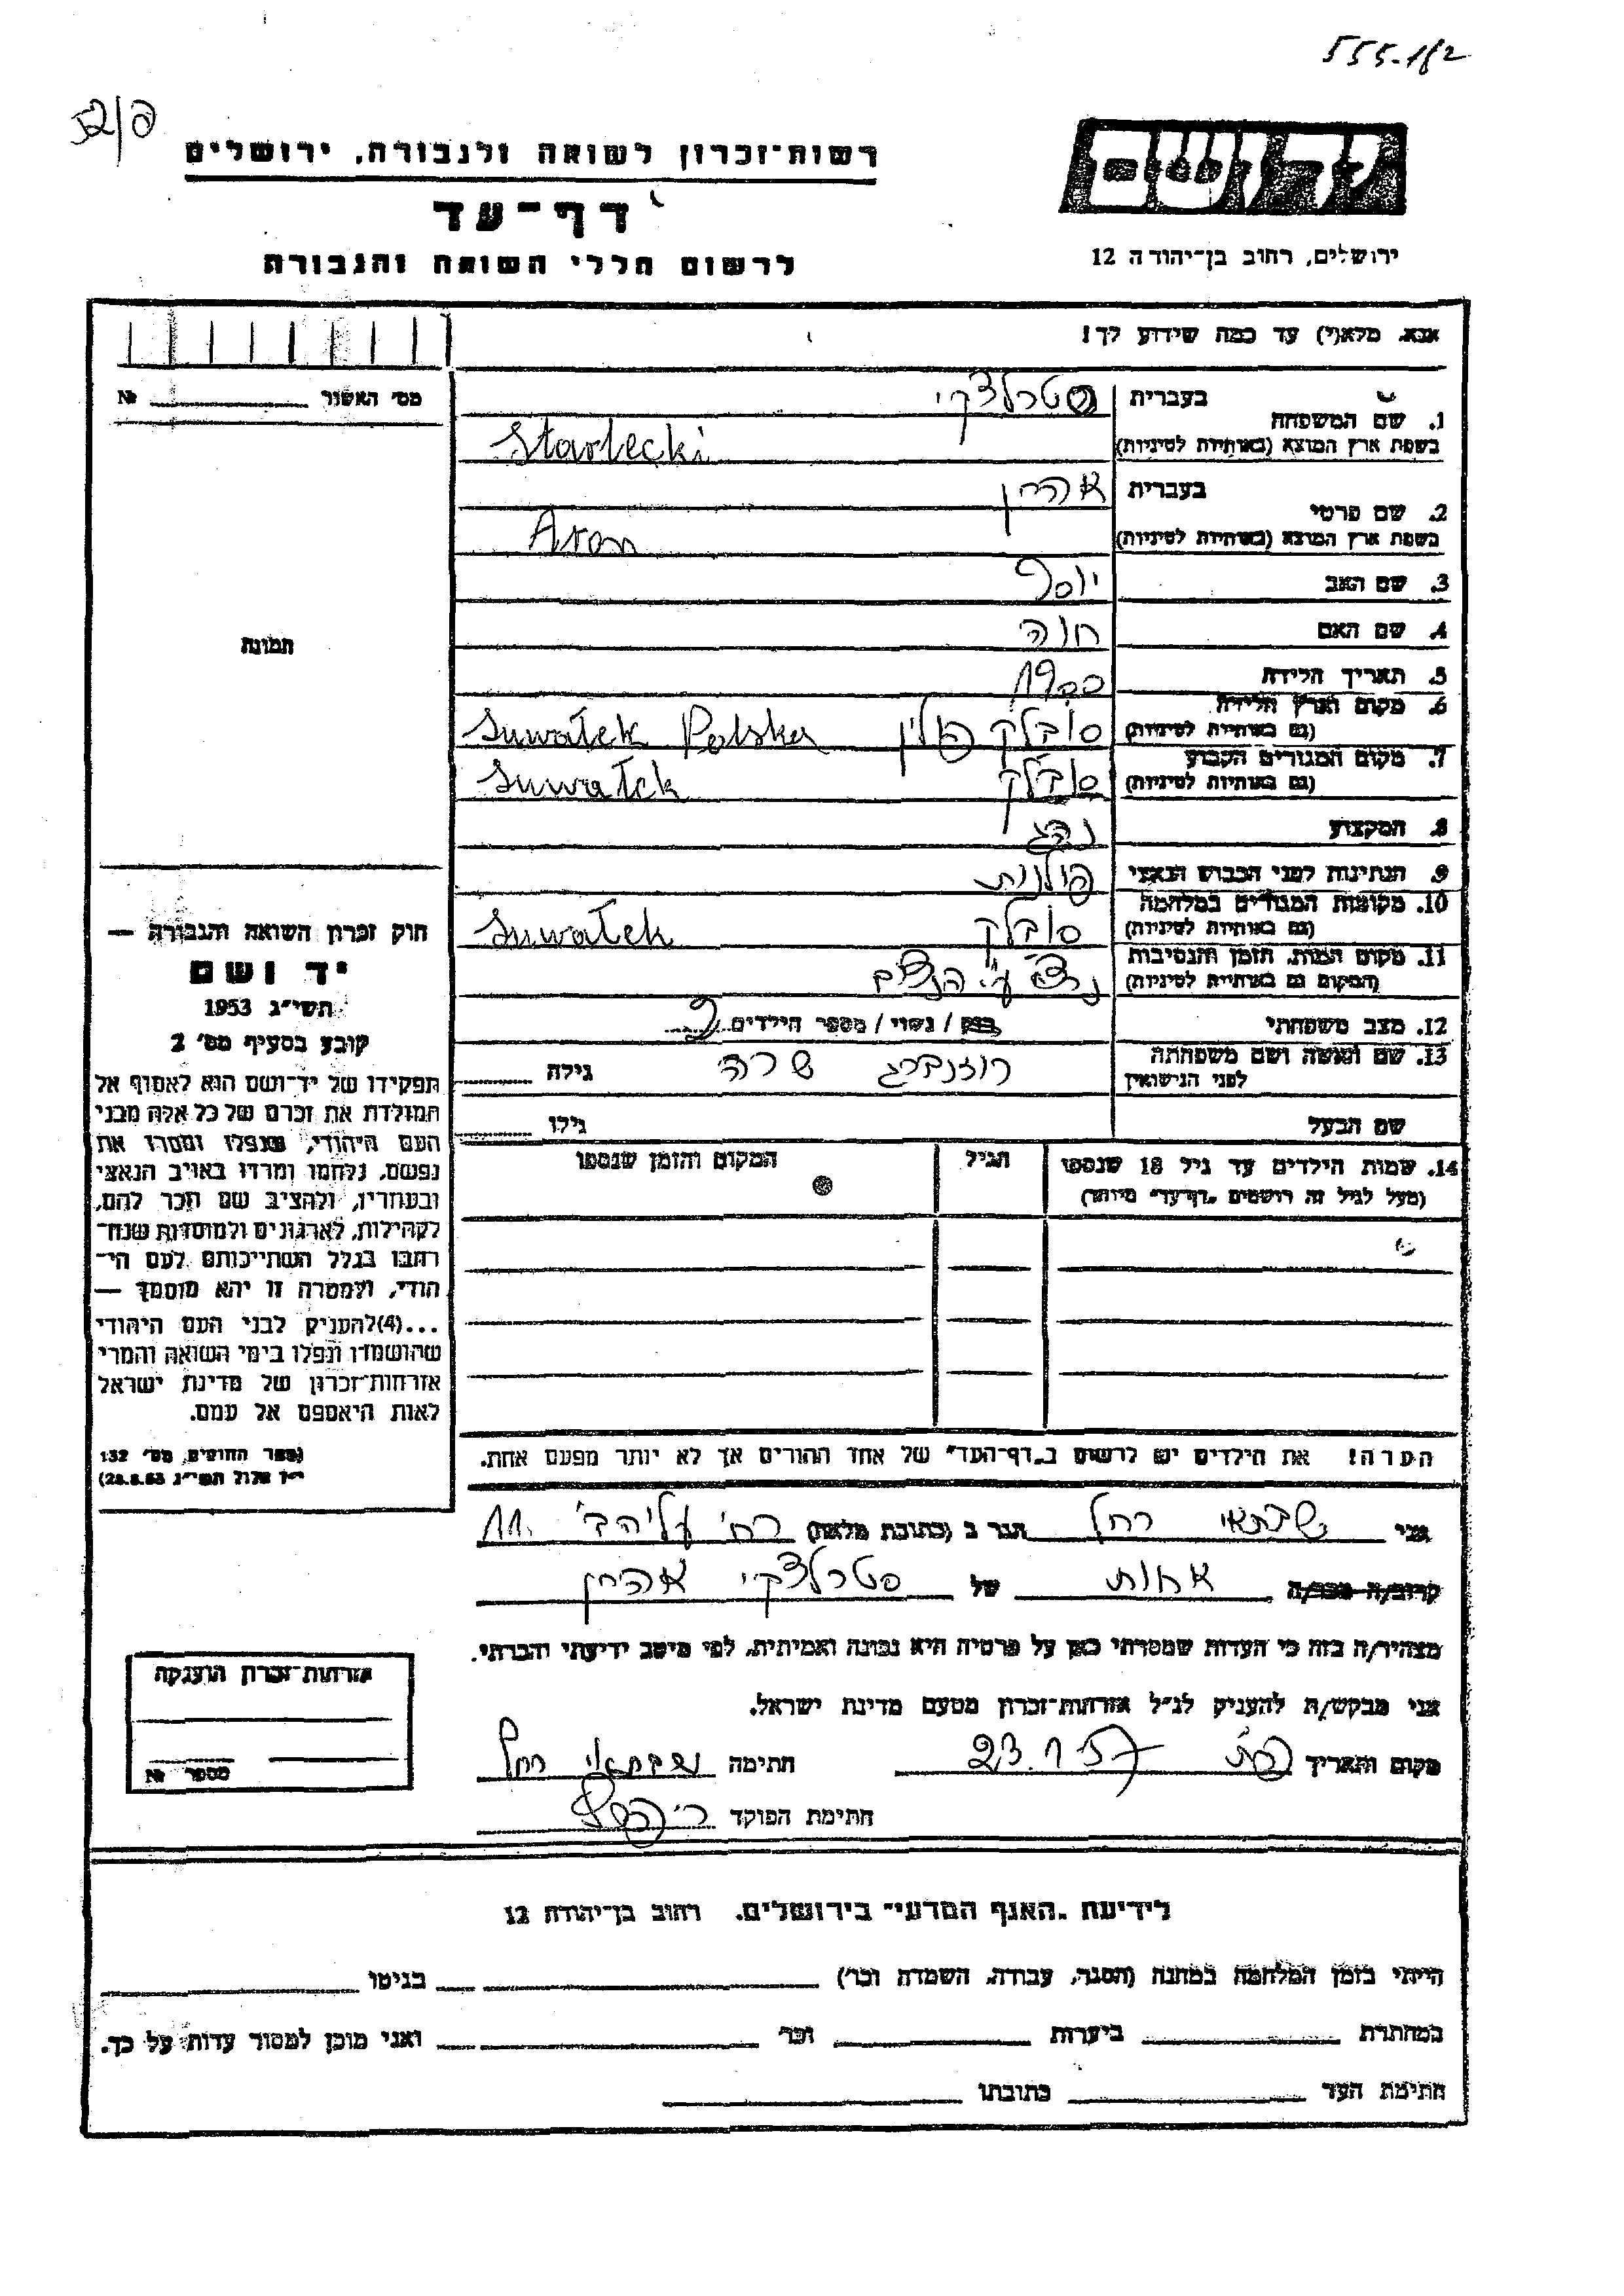 555-1/2
52/פ
יד ושם
רשות-זכרון לשואה ולגבורה, ירושלים
דף-עד
לרשום חללי השואה והגבורה
ירושלים, רחוב בן-יהודה 12
אנא, מלא(י) עד כמה שידוע לך!
מס' האשור № ____
1. שם המשפחה בעברית סטרלצקי
בשפת ארץ המוצא (באותיות לטיניות) Starlecki
2. שם פרטי בעברית אהרן
בשפת ארץ המוצא (באותיות לטיניות) Aron
3. שם האב יוסף
4. שם האם חוה
תמונה
5. תאריך הלידה 1900
6. מקום וארץ הלידה (גם באותיות לטיניות) סובלק פולין Suwałek Polska
7. מקום המגורים הקבוע (גם באותיות לטיניות) סובלק Suwałek
8. המקצוע נהג
9. הנתינות לפני הכבוש הנאצי פולנית
10. מקומות המגורים במלחמה (גם באותיות לטיניות) סובלק Suwałek
11. מקום המות, הזמן והנסיבות (המקום גם באותיות לטיניות) נרצח ע"י הנאצים
12. מצב משפחתי רווק / נשוי / מספר הילדים 2
13. שם האשה ושם משפחתה לפני הנישואין רוזנברג שרה גילה
שם הבעל גילו
14. שמות הילדים עד גיל 18 שנספו הגיל המקום והזמן שנספו
(מעל לגיל זה רושמים "דף-עד" מיוחד)
חוק זכרון השואה והגבורה —
יד ושם
תשי"ג 1953
קובע בסעיף מס' 2
תפקידו של יד-ושם הוא לאסוף אל
המולדת את זכרם של כל אלה מבני
העם היהודי, שנפלו ומסרו את
נפשם, נלחמו ומרדו באויב הנאצי
ובעוזריו, ולהציב שם וזכר להם,
לקהילות, לארגונים ולמוסדות שנח-
רבו בגלל השתייכותם לעם הי-
הודי, ולמטרה זו יהא מוסמך —
...(4)להעניק לבני העם היהודי
שהושמדו ונפלו בימי השואה והמרי
אזרחות-זכרון של מדינת ישראל
לאות היאספם אל עמם.
(ספר החוקים, מס' 132
י"ז אלול תשי"ג 28.8.53)
הערה! את הילדים יש לרשום ב"דף-העד" של אחד ההורים אך לא יותר מפעם אחת.
אני שבתאי רחל הגר ב (כתובת מלאה) רח' עליה ב' 11
קרוב/ה מכר/ה אחות של סטרלצקי אהרן
מצהיר/ה בזה כי העדות שמסרתי כאן על פרטיה היא נכונה ואמיתית, לפי מיטב ידיעתי והכרתי.
אני מבקש/ת להעניק לנ"ל אזרחות-זכרון מטעם מדינת ישראל.
מקום ותאריך 23.1.57 חתימה שבתאי רחל
חתימת הפוקד
אזרחות-זכרון הוענקה
מספר №
לידיעת "האגף המדעי" בירושלים, רחוב בן-יהודה 12
הייתי בזמן המלחמה במחנה (הסגר, עבודה, השמדה וכו') ____ בגיטו ____
במחתרת ____ ביערות ____ וכו' ____ ואני מוכן למסור עדות על כך.
חתימת העד ____ כתובתו ____